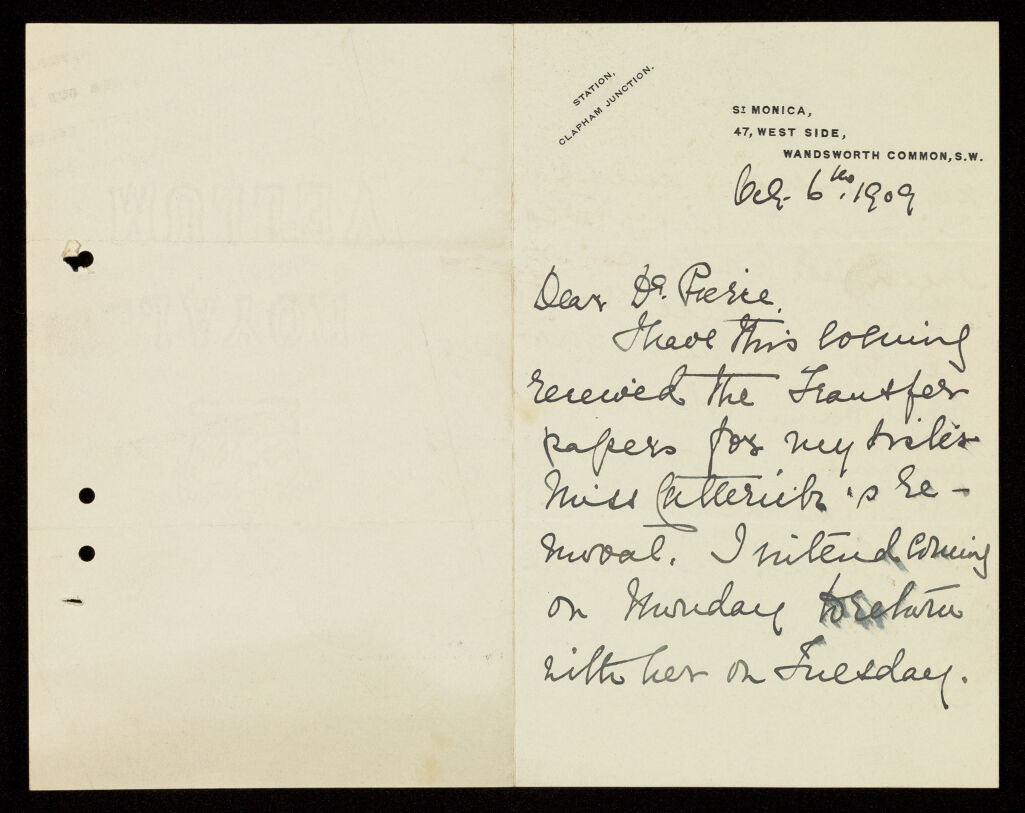 STATION,
CLAPHAM JUNCTION.
ST MONICA,
47, WEST SIDE,
WANDSWORTH COMMON, S.W.
Oct. 6th. 1909
Dear Dr. Pierce.
I have this Morning
received the Transfer
papers for my sister
Miss Catterick's re-
moval. I intend coming
on Monday to return
with her on Tuesday.